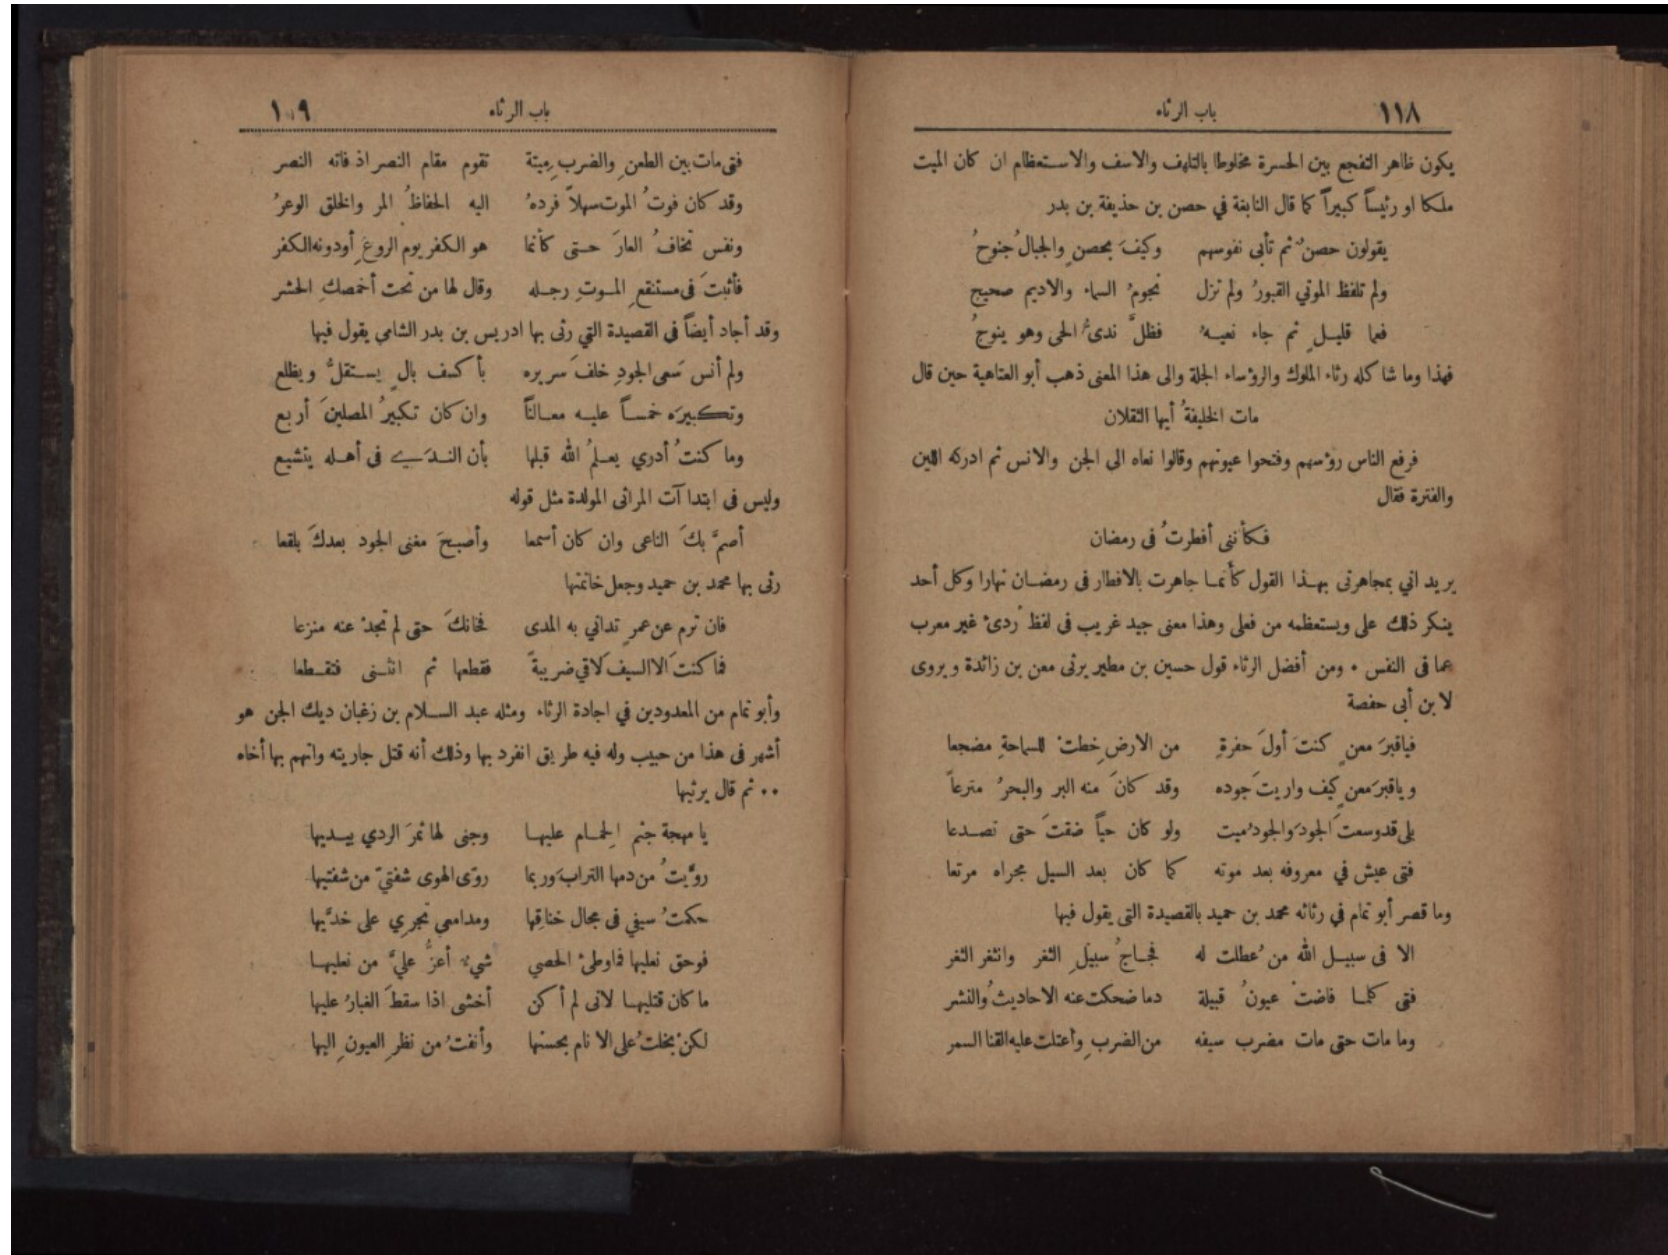 ١١٨ باب الرثاء
يكون ظاهر التفجع بين الحسرة مخلوطا بالتلهف والاسف والاستعظام ان كان الميت
ملكا او رئيساً كبيراً كما قال النابغة في حصن بن حذيفة بن بدر
يقولون حصنٌ ثم تأبى نفوسهم وكيفَ بحصنٍ والجبالُ جنوحُ
ولم تلفظ الموتي القبورُ ولم تزل نجومُ السماء والاديم صحيح
فعما قليلٍ ثم جاء نعيهُ فظلَّ نديُّ الحى وهو ينوحُ
فهذا وما شاكله رثاء الملوك والرؤساء الجلة والى هذا المعنى ذهب أبو العتاهية حين قال
مات الخليفةُ أيها الثقلان
فرفع الناس رؤسهم وفتحوا عيونهم وقالوا نعاه الى الجن والانس ثم ادركه اللين
والفترة فقال
فكأننى أفطرتُ فى رمضان
يريد اني بمجاهرتى بهذا القول كأنما جاهرت بالافطار فى رمضان نهارا وكل أحد
ينكر ذلك على ويستعظمه من فعلى وهذا معنى جيد غريب فى لفظ ردئ غير معرب
عما فى النفس • ومن أفضل الرثاء قول حسين بن مطير يرثى معن بن زائدة ويروى
لابن أبى حفصة
فياقبرَ معنٍ كنتَ أولَ حفرةِ من الارضِ خطتْ للسماحةِ مضجعا
وياقبرَ معنٍ كيف واريتَ جوده وقد كانَ منه البر والبحرُ مترعاً
بلى قدوسعتَ الجودَ والجودُ ميت ولو كان حياً ضقتَ حتى تصدعا
فتى عيش في معروفه بعد موته كما كان بعد السيل مجراه مرتعا
وما قصر أبو تمام في رثائه محمد بن حميد بالقصيدة التى يقول فيها
الا فى سبيل الله من عُطلت له فجاجُ سبيلِ الثغر وانثغر الثغر
فتى كلما فاضتْ عيونُ قبيلة دما ضحكت عنه الاحاديثُ والنشر
وما مات حتى مات مضرب سيفه من الضربِ وأعتلت عليه القنا السمر
باب الرثاء ١٠٩
فتى مات بين الطعنِ والضربِ ميتة تقوم مقام النصر اذ فاته النصر
وقد كان فوتُ الموت سهلاً فردهُ اليه الحفاظُ المر والخلق الوعرُ
ونفس تخافُ العارَ حتى كأنما هو الكفر يوم الروعِ أو دونه الكفر
فأثبتَ فى مستنقعِ الموتِ رجله وقال لها من تحت أخمصكِ الحشر
وقد أجاد أيضاً فى القصيدة التي رثى بها ادريس بن بدر الشامي يقول فيها
ولم أنس سَعى الجودِ خلفَ سريره بأكسف بالٍ يستقلُّ ويظلع
وتكبيرَه خمساً عليه معالنًا وان كان تكبيرُ المصلينَ أربع
وما كنتُ أدري يعلمُ الله قبلها بأن الندَي فى أهله يتشيع
وليس فى ابتداآت المراثى المولدة مثل قوله
أصمَّ بكَ الناعى وان كان أسمعا وأصبحَ مغنى الجود بعدكَ بلقعا
رثى بها محمد بن حميد وجعل خاتمتها
فان ترم عن عمرٍ تدانى به المدى فخانكَ حتى لم تجدْ عنه منزعا
فما كنتَ الا السيف لاقي ضريبةً فقطعها ثم انثنى فتقطعا
وأبو تمام من المعدودين في اجادة الرثاء ومثله عبد السلام بن زغبان ديك الجن هو
أشهر فى هذا من حبيب وله فيه طريق انفرد بها وذلك أنه قتل جاريته واتهم بها أخاه
•• ثم قال يرثيها
يا مهجة جثم الِحمام عليها وجنى لها ثمرَ الردي بيديها
روَّيتُ من دمها الترابَ وربما روّى الهوى شفتيّ من شفتيها
حكمتُ سيفي فى مجال خناقِها ومدامعي تجرِي على خدَّيها
فوحق نعليها فماوطئ الحصي شيءٌ أعزُّ عليَّ من نعليها
ما كان قتليها لانى لم أكن أخشى اذا سقطَ الغبارُ عليها
لكنْ بخلتُ على الانام بحسنها وأنفتُ من نظرِ العيونِ اليها